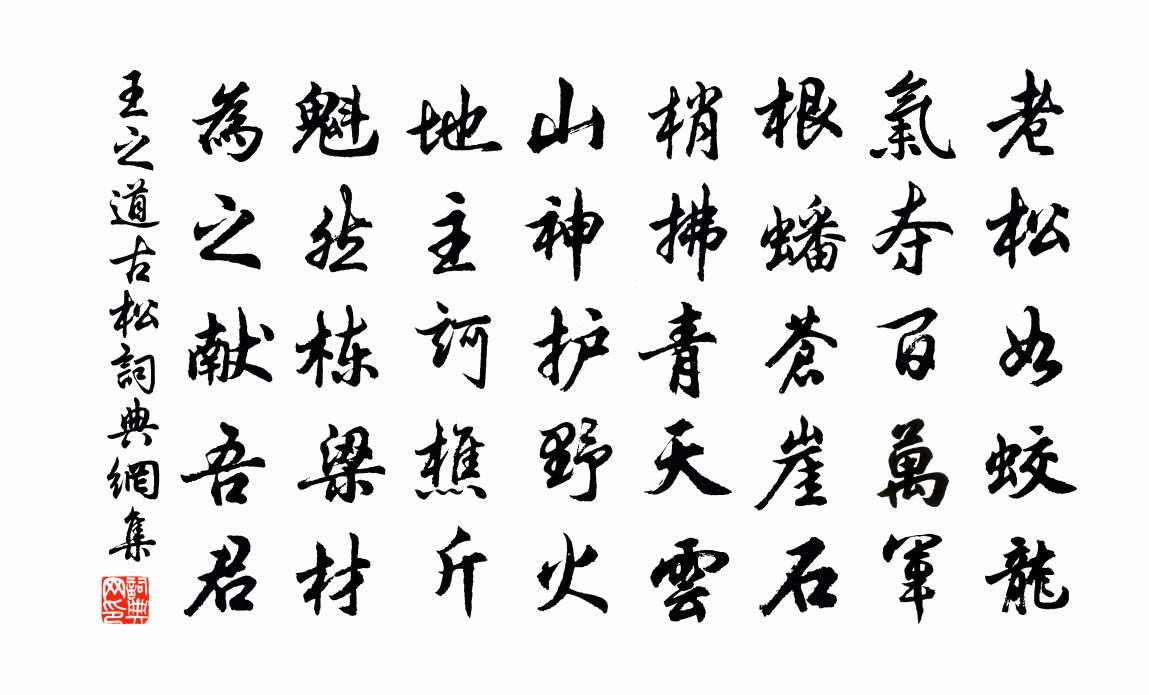 老松如蛟龍
氣夺百萬軍
根蟠蒼崖石
梢拂青天雲
山神护野火
地主訶樵斤
魁然栋梁材
為之献吾君
王之道古松詞典網集
詞典
网印